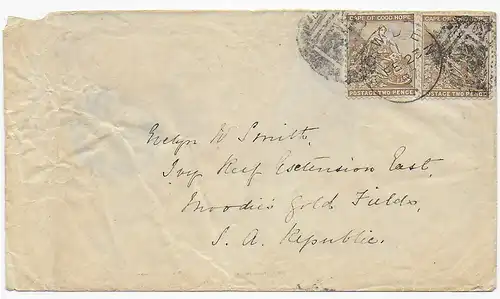 CAPE OF GOOD HOPE CAPE OF GOOD HOPE
POSTAGE TWO PENCE POSTAGE TWO PENCE
Evelyn W Smith,
Ivy Reef Extension East,
Moodie's Gold Fields,
S. A. Republic.